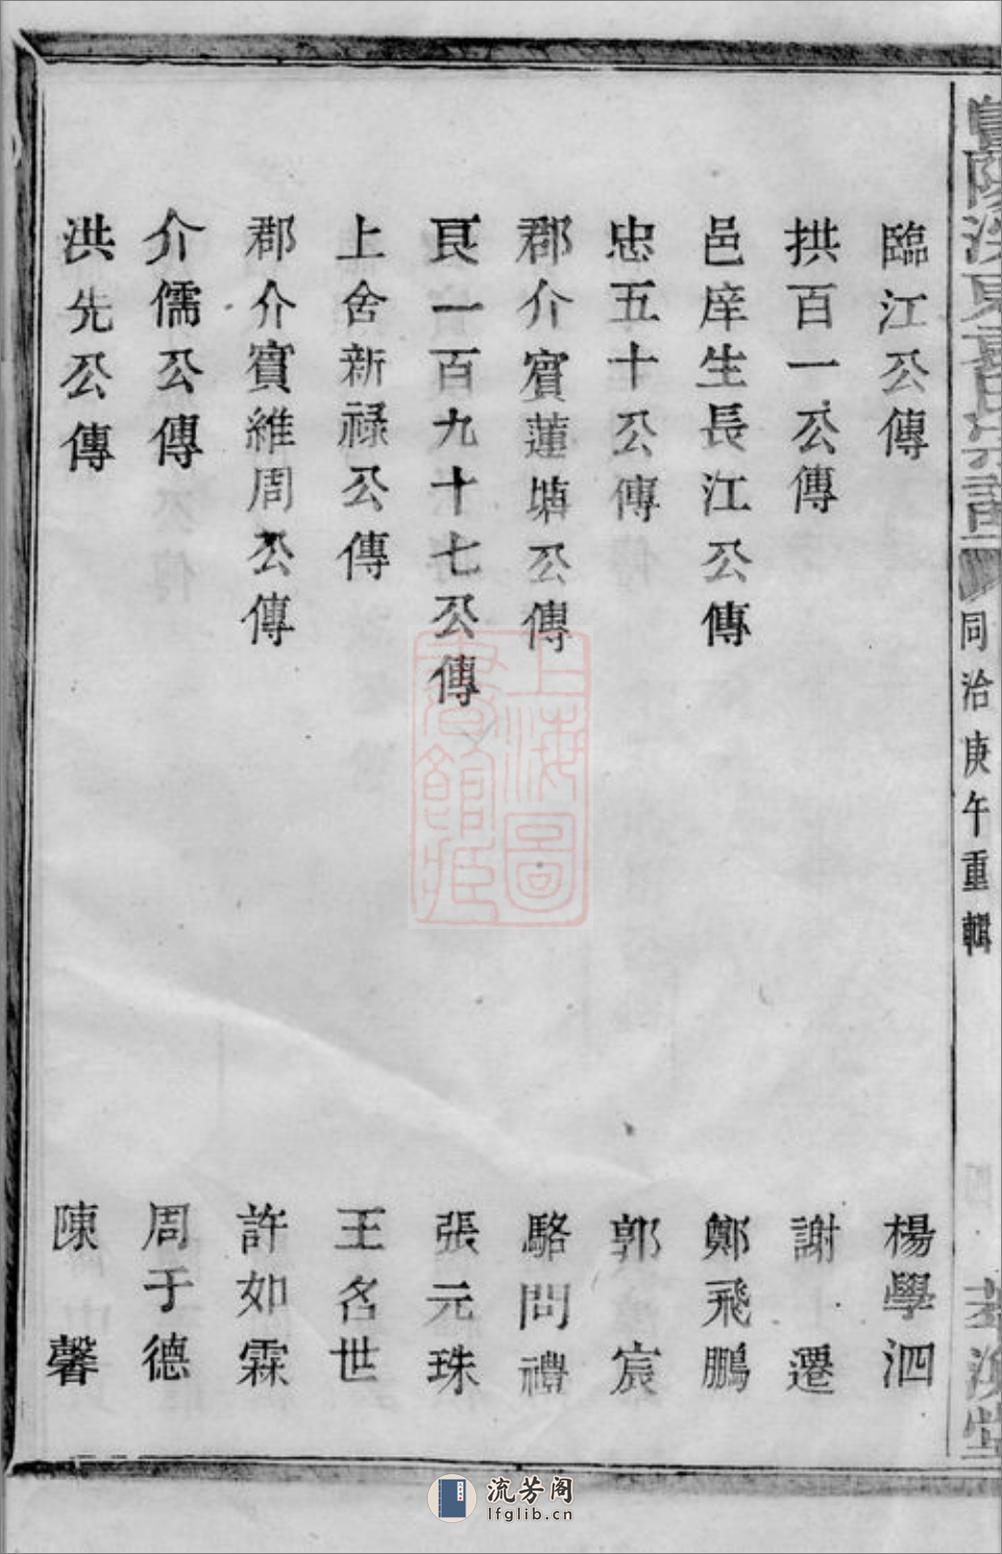 臨江公傳　楊學泗
拱百一公傳　謝遷
邑庠生長江公傳　鄭飛鵬
忠五十公傳　郭宸
郡介賓蓮塘公傳　駱問禮
艮一百九十七公傳　張元珠
上舍新祿公傳　王名世
郡介賓維周公傳　許如霖
介儒公傳　周于德
洪先公傳　陳馨
同治庚午重輯
上海圖書館藏
流芳阁
lfglib.cn